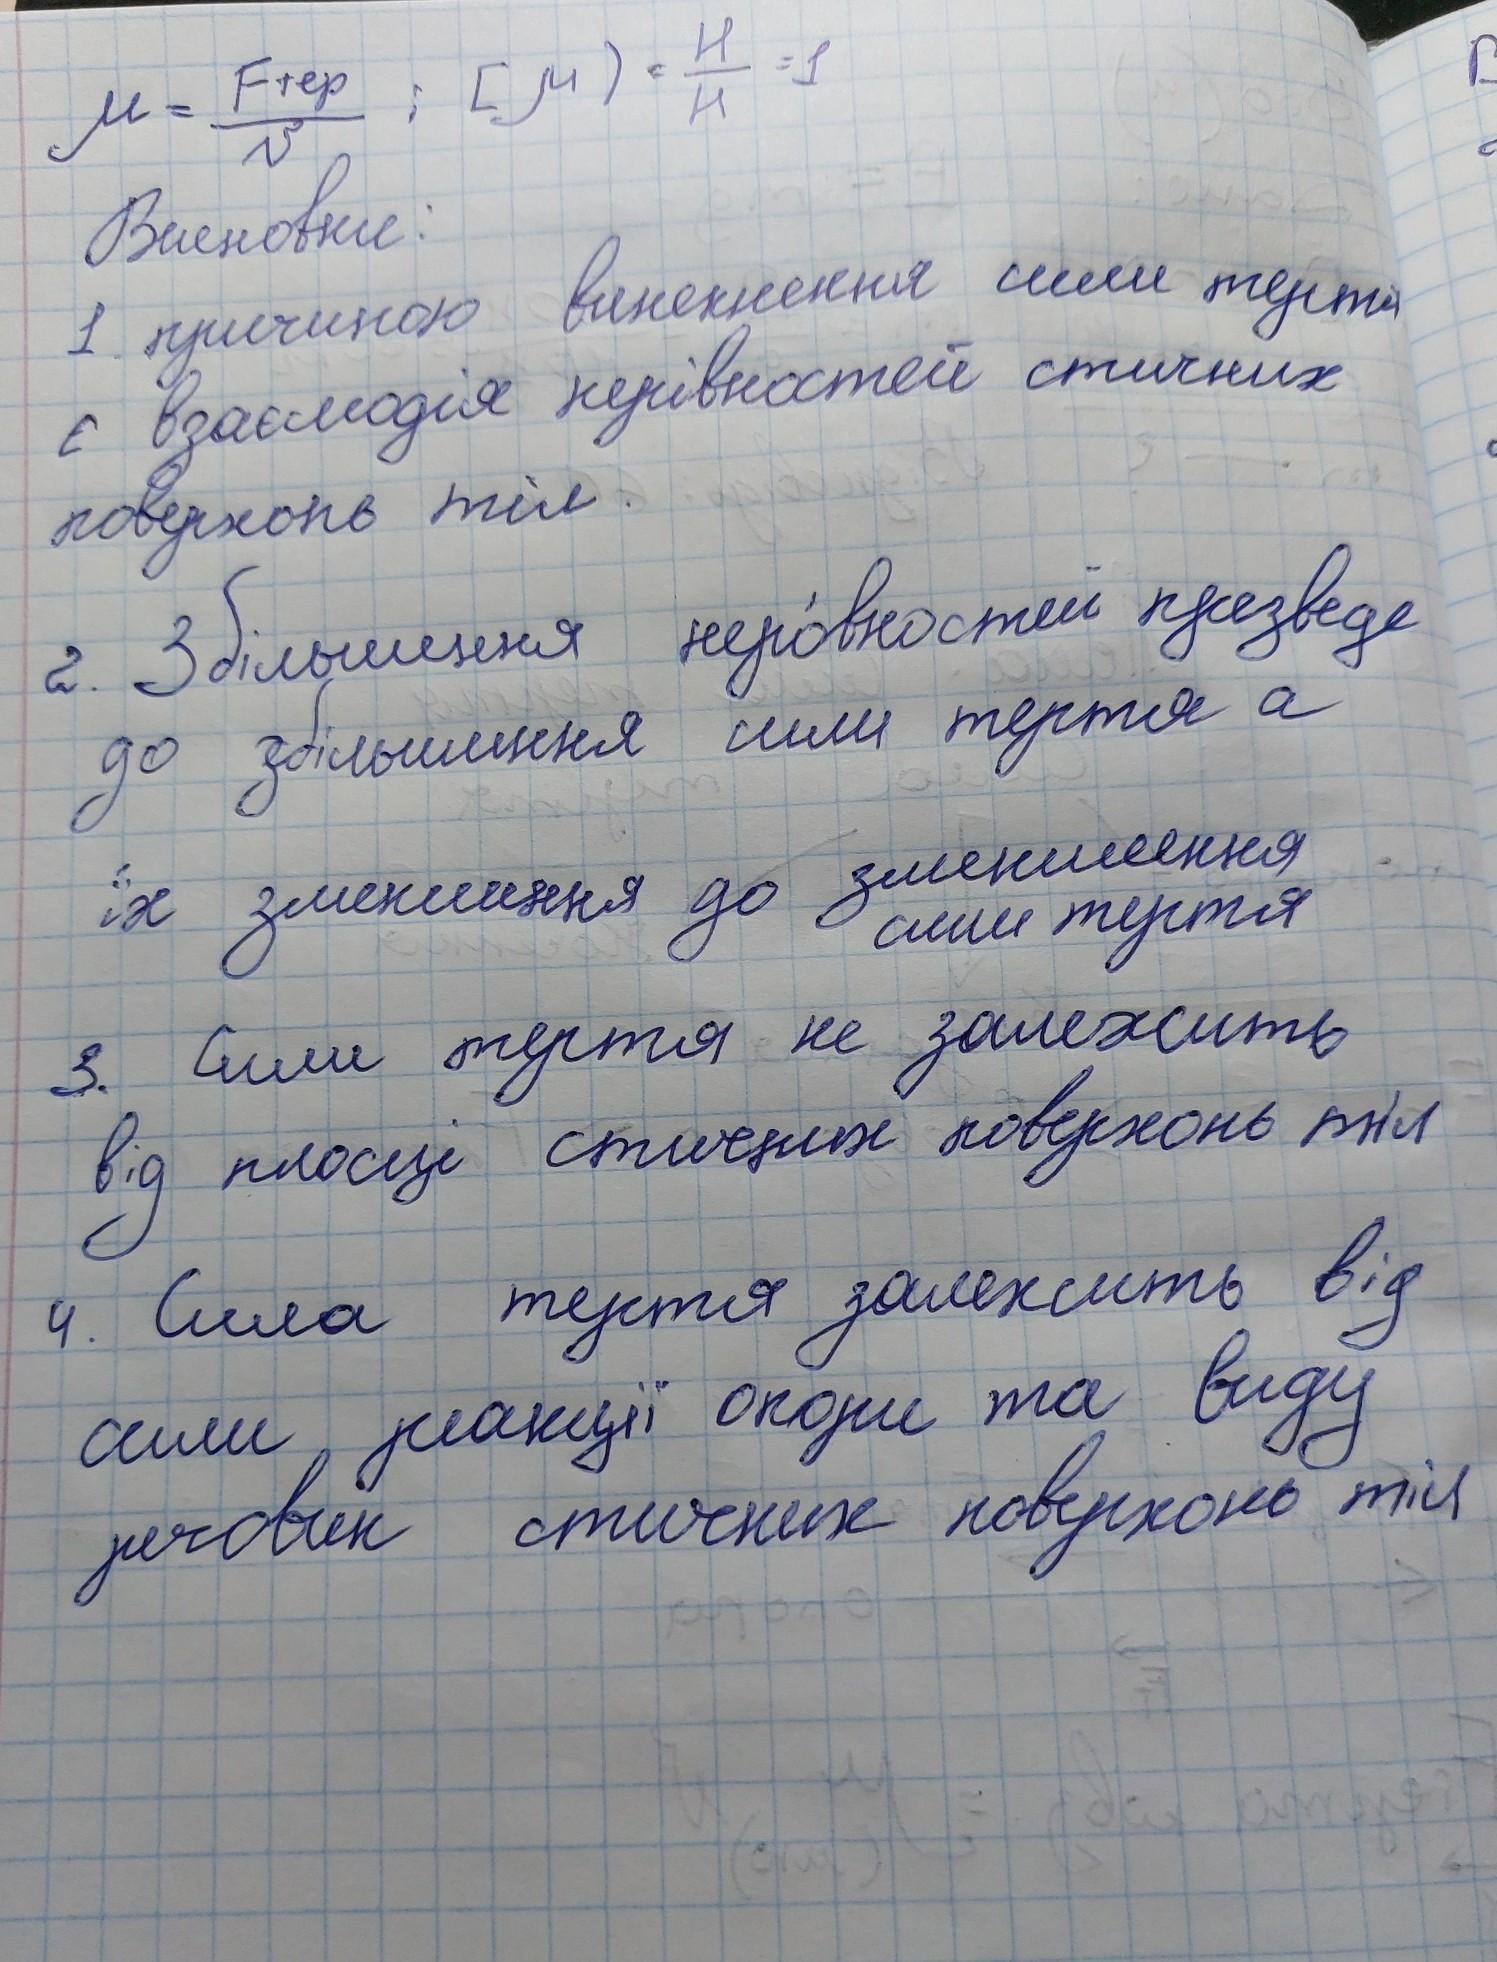 μ = Fтер / N ; [μ] = Н / Н = 1
Висновки:
1. причиною виникнення сили тертя
є взаємодія нерівностей стичних
поверхонь тіл.
2. Збільшення неровностей призведе
до збільшення сили тертя а
їх зменшення до зменшення
сили тертя
3. Сили тертя не залежить
від площі стичних поверхонь тіл
4. Сила тертя залежить від
сили реакції опори та виду
речовин стичних поверхонь тіл